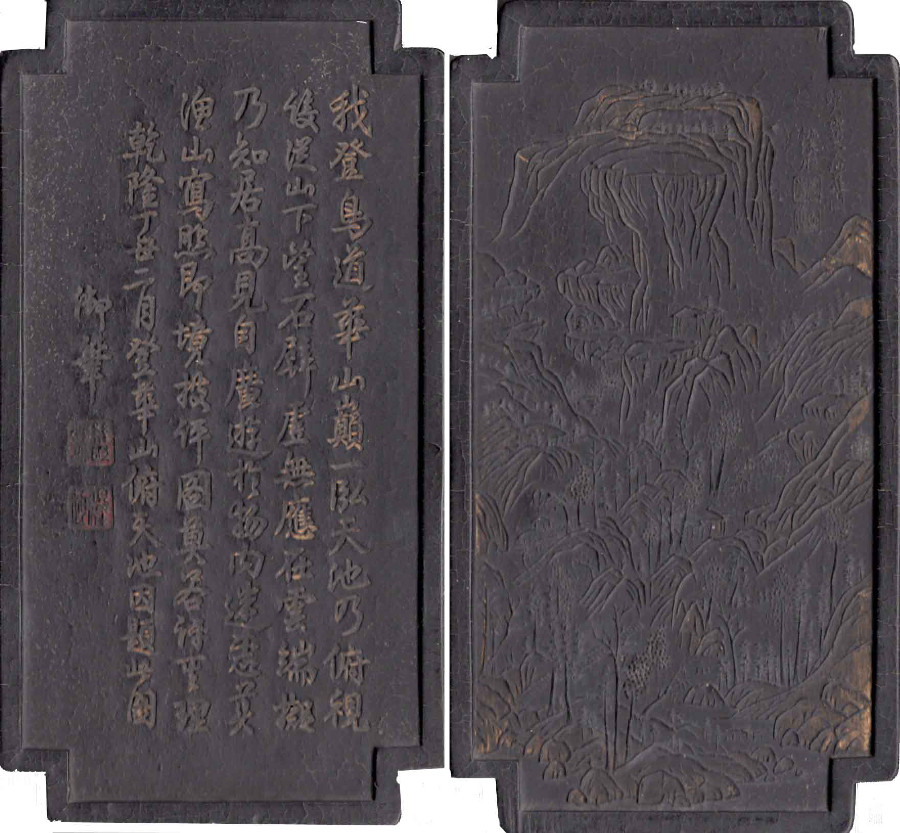 我登鳥道華山巔一泓天池乃俯視
後從山下望石屏虛無應在雲端擬
乃知居高見自廣遊於物內迷莫
漁山寫照即境披伻圖真理
乾隆丁丑二月登華山俯天池因題此圖
御筆